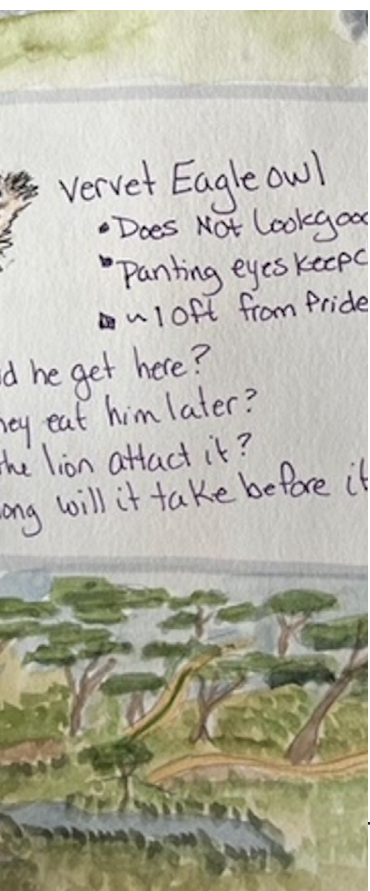 Vervet Eagle owl
• Does Not Lookgood
• Panting eyes keep
• ~10ft from Pride
he get here?
eat him later?
the lion attact it?
will it take before it